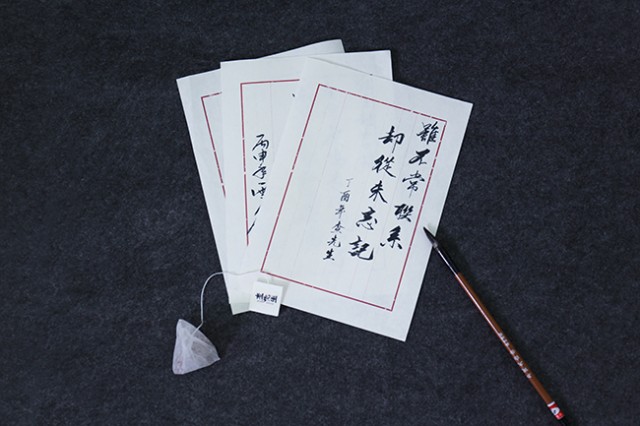 雖不常聯系
却從未忘記
丁酉年李先生
丙申年一